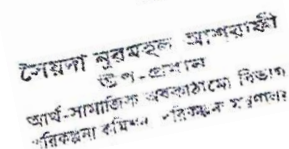 সৈয়দা নুরমহল আশরাফী
উপ-প্রধান
আর্থ-সামাজিক অবকাঠামো বিভাগ
পরিকল্পনা কমিশন, পরিকল্পনা মন্ত্রণালয়